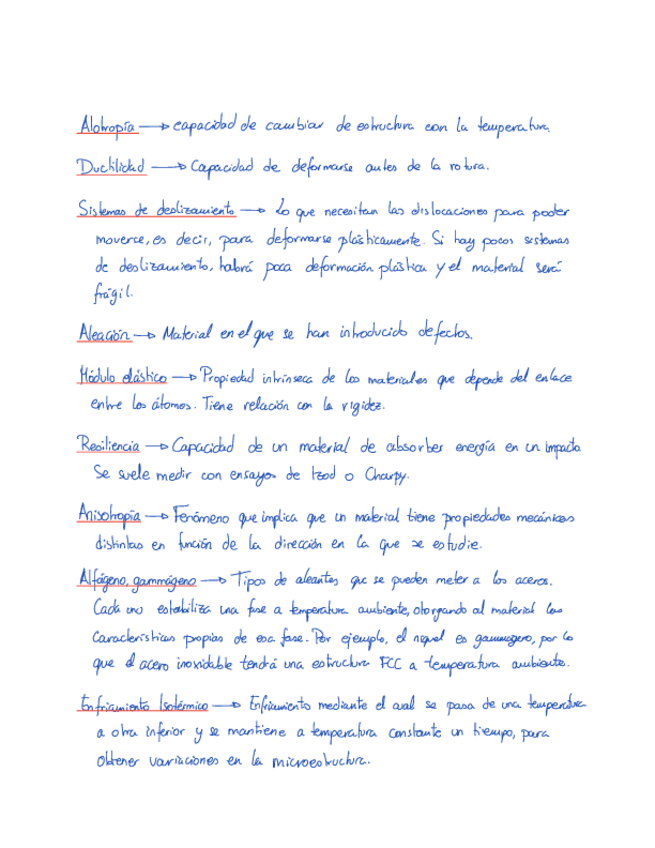 Alotropía → capacidad de cambiar de estructura con la temperatura.
Ductilidad → Capacidad de deformarse antes de la rotura.
Sistemas de deslizamiento → Lo que necesitan las dislocaciones para poder
moverce, es decir, para deformarse plásticamente. Si hay pocos sistemas
de deslizamiento, habrá poca deformación plástica y el material será
frágil.
Aleación → Material en el que se han introducido defectos.
Módulo elástico → Propiedad intrínseca de los materiales que depende del enlace
entre los átomos. Tiene relación con la rigidez.
Resiliencia → Capacidad de un material de absorber energía en un impacto
Se suele medir con ensayos de Izod o Charpy.
Anisotropía → Fenómeno que implica que un material tiene propiedades mecánicas
distintas en función de la dirección en la que se estudie.
Alfágeno, gammágeno → Tipos de aleantes que se pueden meter a los aceros.
Cada uno estabiliza una fase a temperatura ambiente, otorgando al material las
características propias de esa fase. Por ejemplo, el níquel es gammageno, por lo
que el acero inoxidable tendrá una estructura FCC a temperatura ambiente.
Enfriamiento Isotérmico → Enfriamiento mediante el cual se pasa de una temperatura
a otra inferior y se mantiene a temperatura constante un tiempo, para
obtener variaciones en la microestructura.